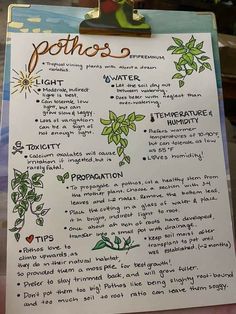 pothos
EPIPREMNUM
• Tropical vining plants with
LIGHT
• Moderate, indirect
light is best.
• Can tolerate low
light, but can
grow slowly & leggy
• Loss of variegation
can be a sign of
not enough light.
WATER
• Let the soil dry out
between watering.
• Does better with neglect than
over-watering.
TEMPERATURE &
HUMIDITY
• Prefers warmer
temperatures of
but can tolerate as low
as 55°F
• Loves humidity!
TOXICITY
• Calcium oxalates will cause
irritation if ingested, but is
rarely fatal.
PROPAGATION
• To propagate a pothos, cut a healthy stem from
the mother plant. Choose a section with 3-4
leaves and 1-2 nodes. Remove the bottom leaf.
• Place the cutting in a glass of water & place
it in bright, indirect light to root.
• Once an inch of roots have developed,
transfer into a small pot with drainage.
• Keep soil moist after
transplant to pot until
well established. (~2 months)
TIPS
• Pothos love to
climb upwards, as
they do in their natural habitat,
so provide them a moss pole for best growth!
• Prefer to stay trimmed back, and will grow fuller.
• Don't pot them too big! Pothos like being slightly root-bound
and too much soil to root ratio can leave them soggy.